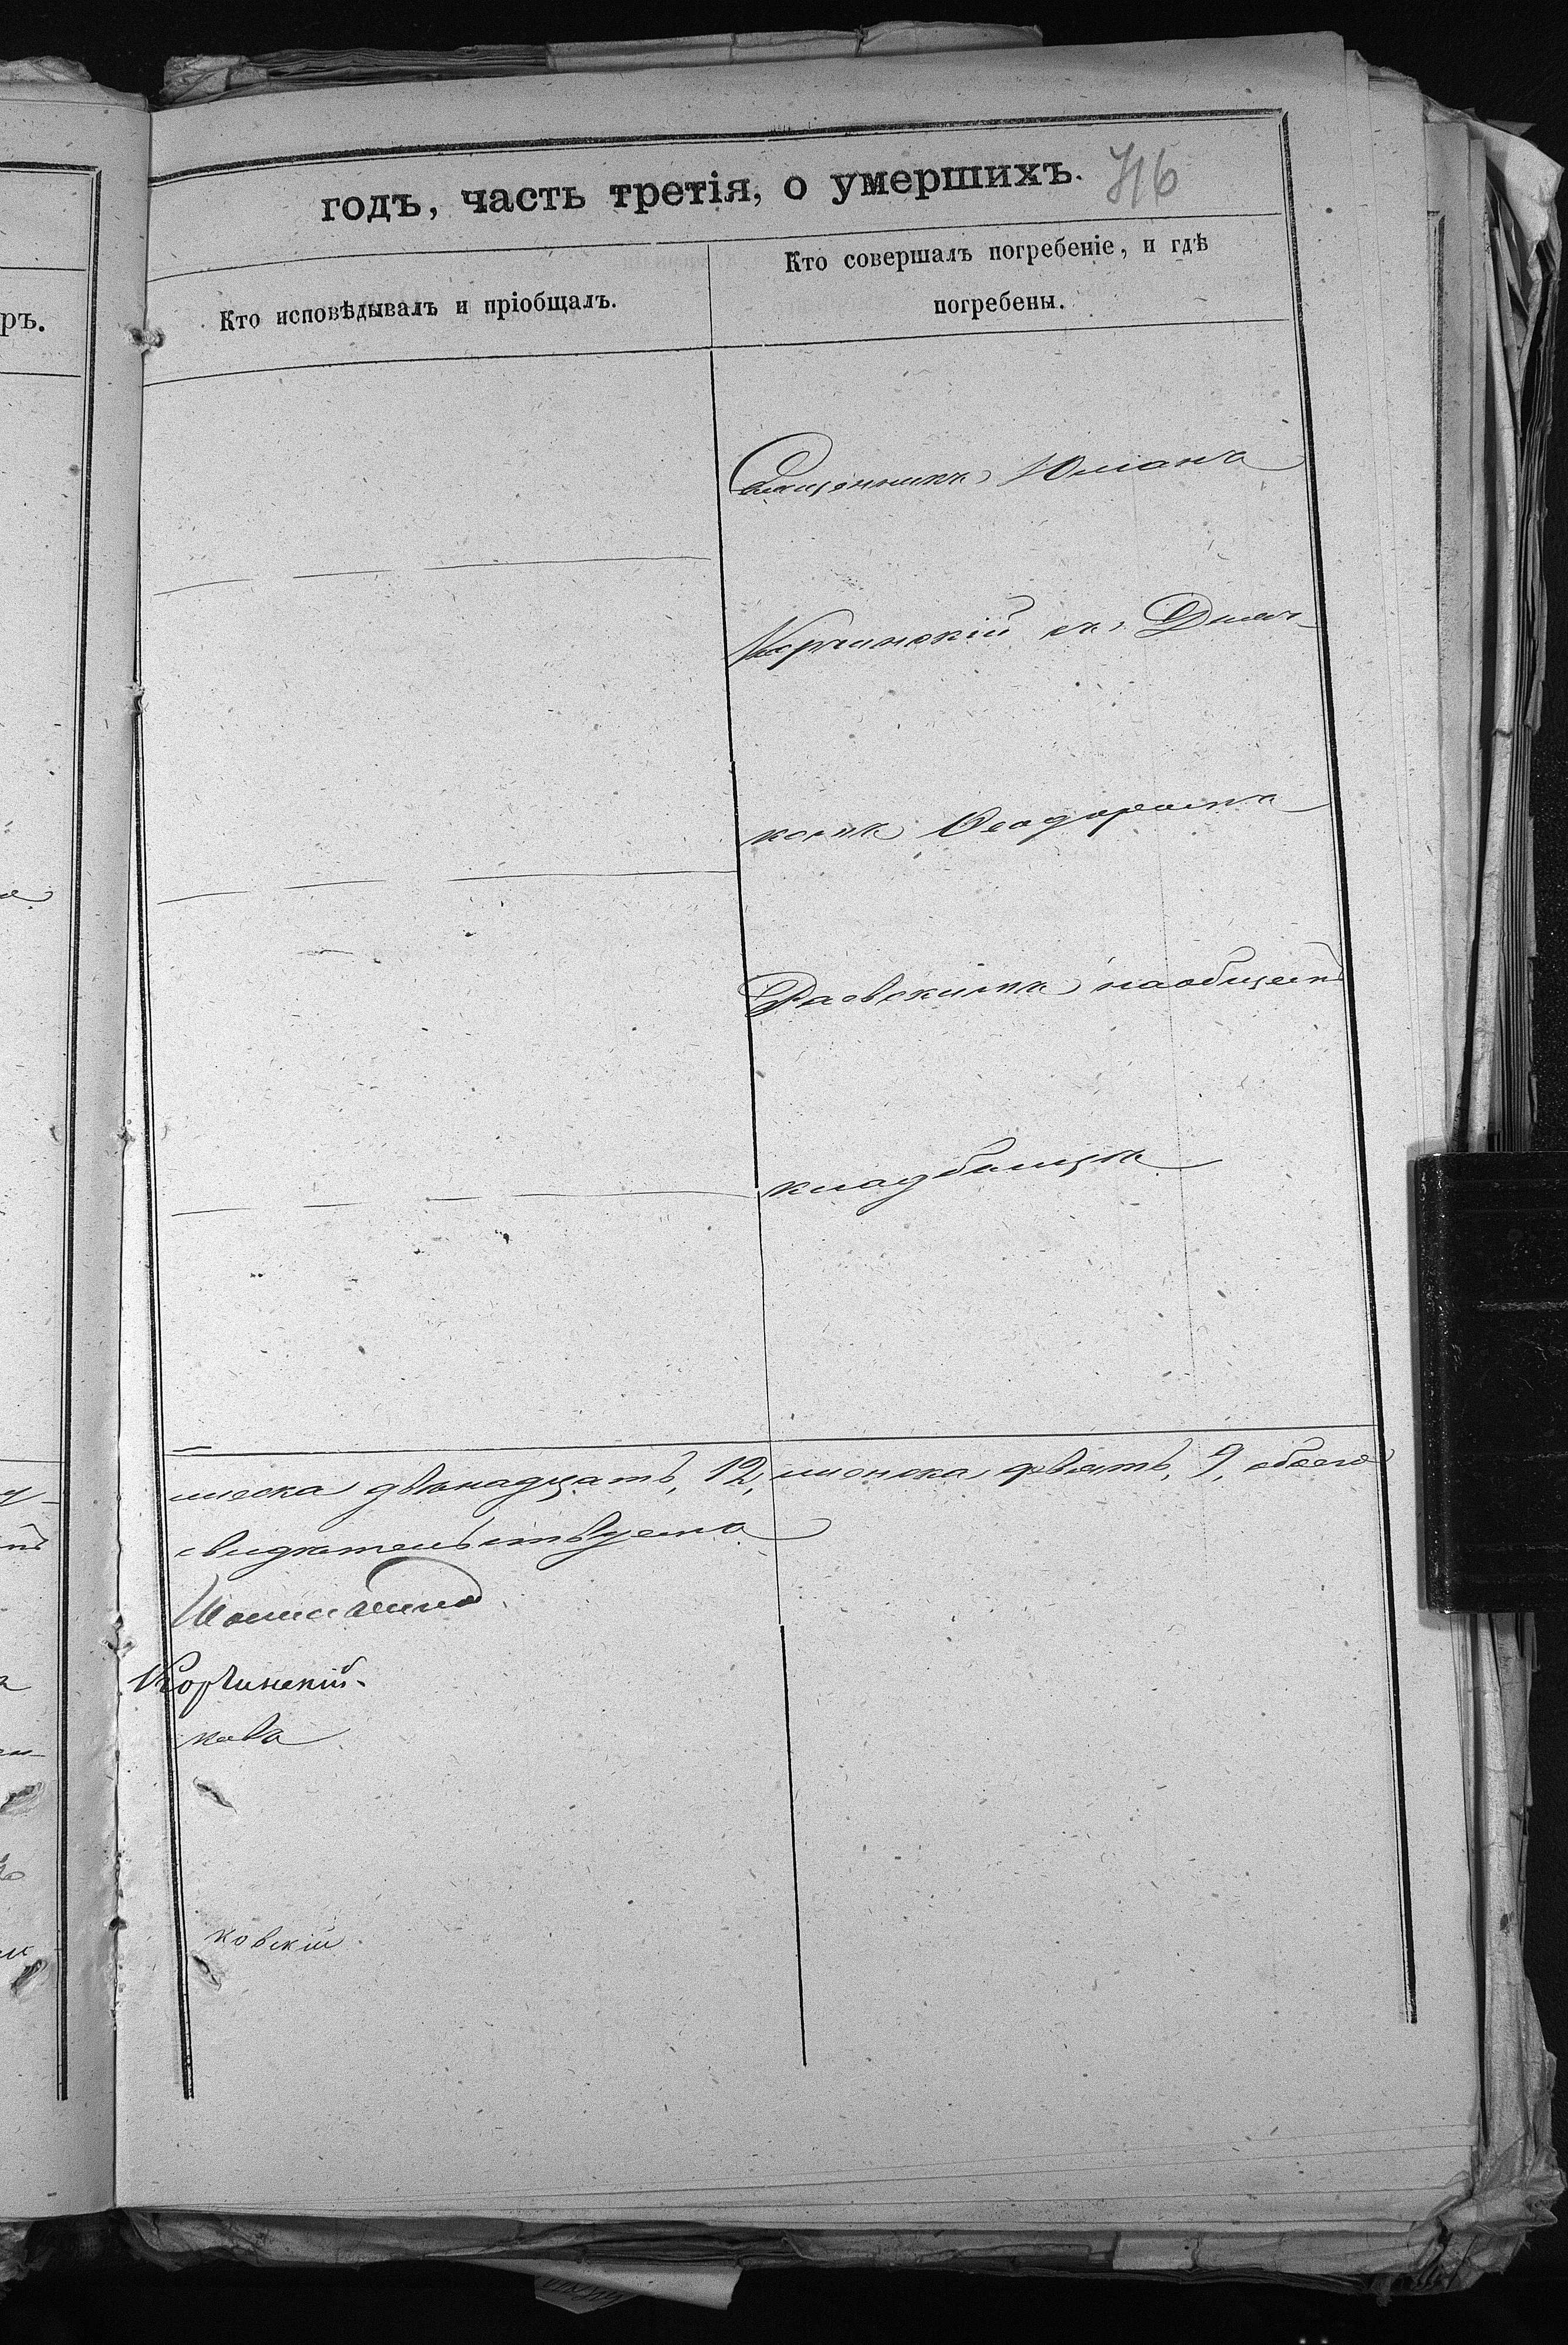 годъ, часть третія, о умершихъ. 716
Кто исповѣдывалъ и пріобщалъ.
Кто совершалъ погребеніе, и гдѣ
погребены.
ръ.
Священникъ Юліанъ
Корчинскій съ Дьяч-
комъ Ѳеодоромъ
Раевскимъ на общемъ
кладбищѣ
мужеска двѣнадцать, 12, женска девять, 9, обоего
свидѣтельствуемъ
Корчинскій.
кова
ковскій